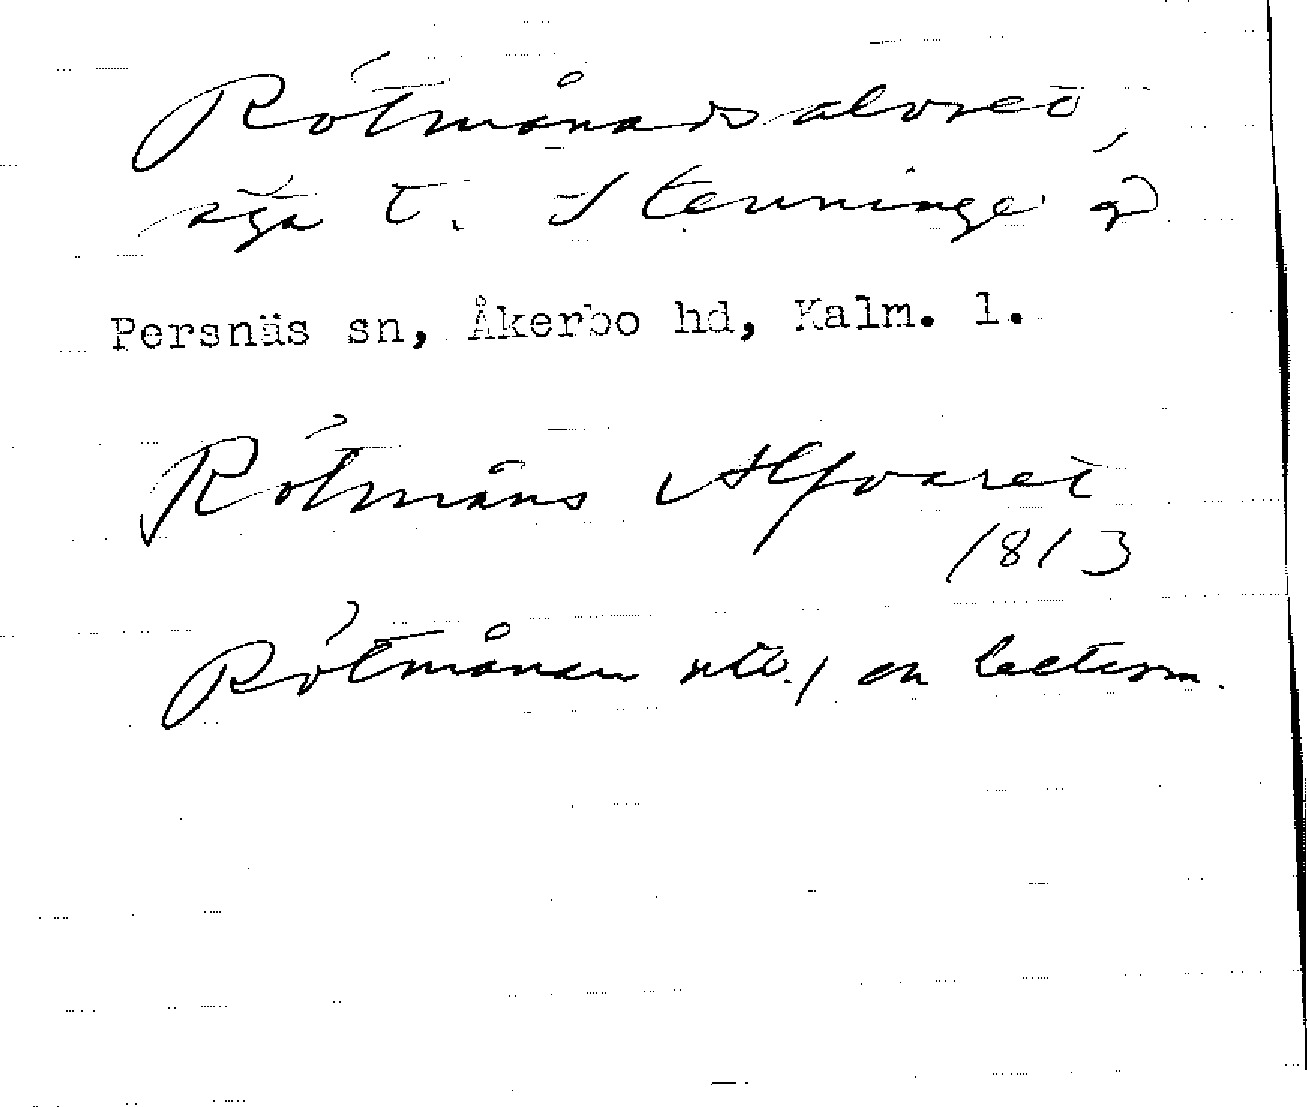 Rótmånadsalvret,
äga t. Stenninge g
Persnäs sn, Åkerbo hd, Kalm. l.
Rótmåns Alfvaret
1813
Rótmånan utb./ en betesm.